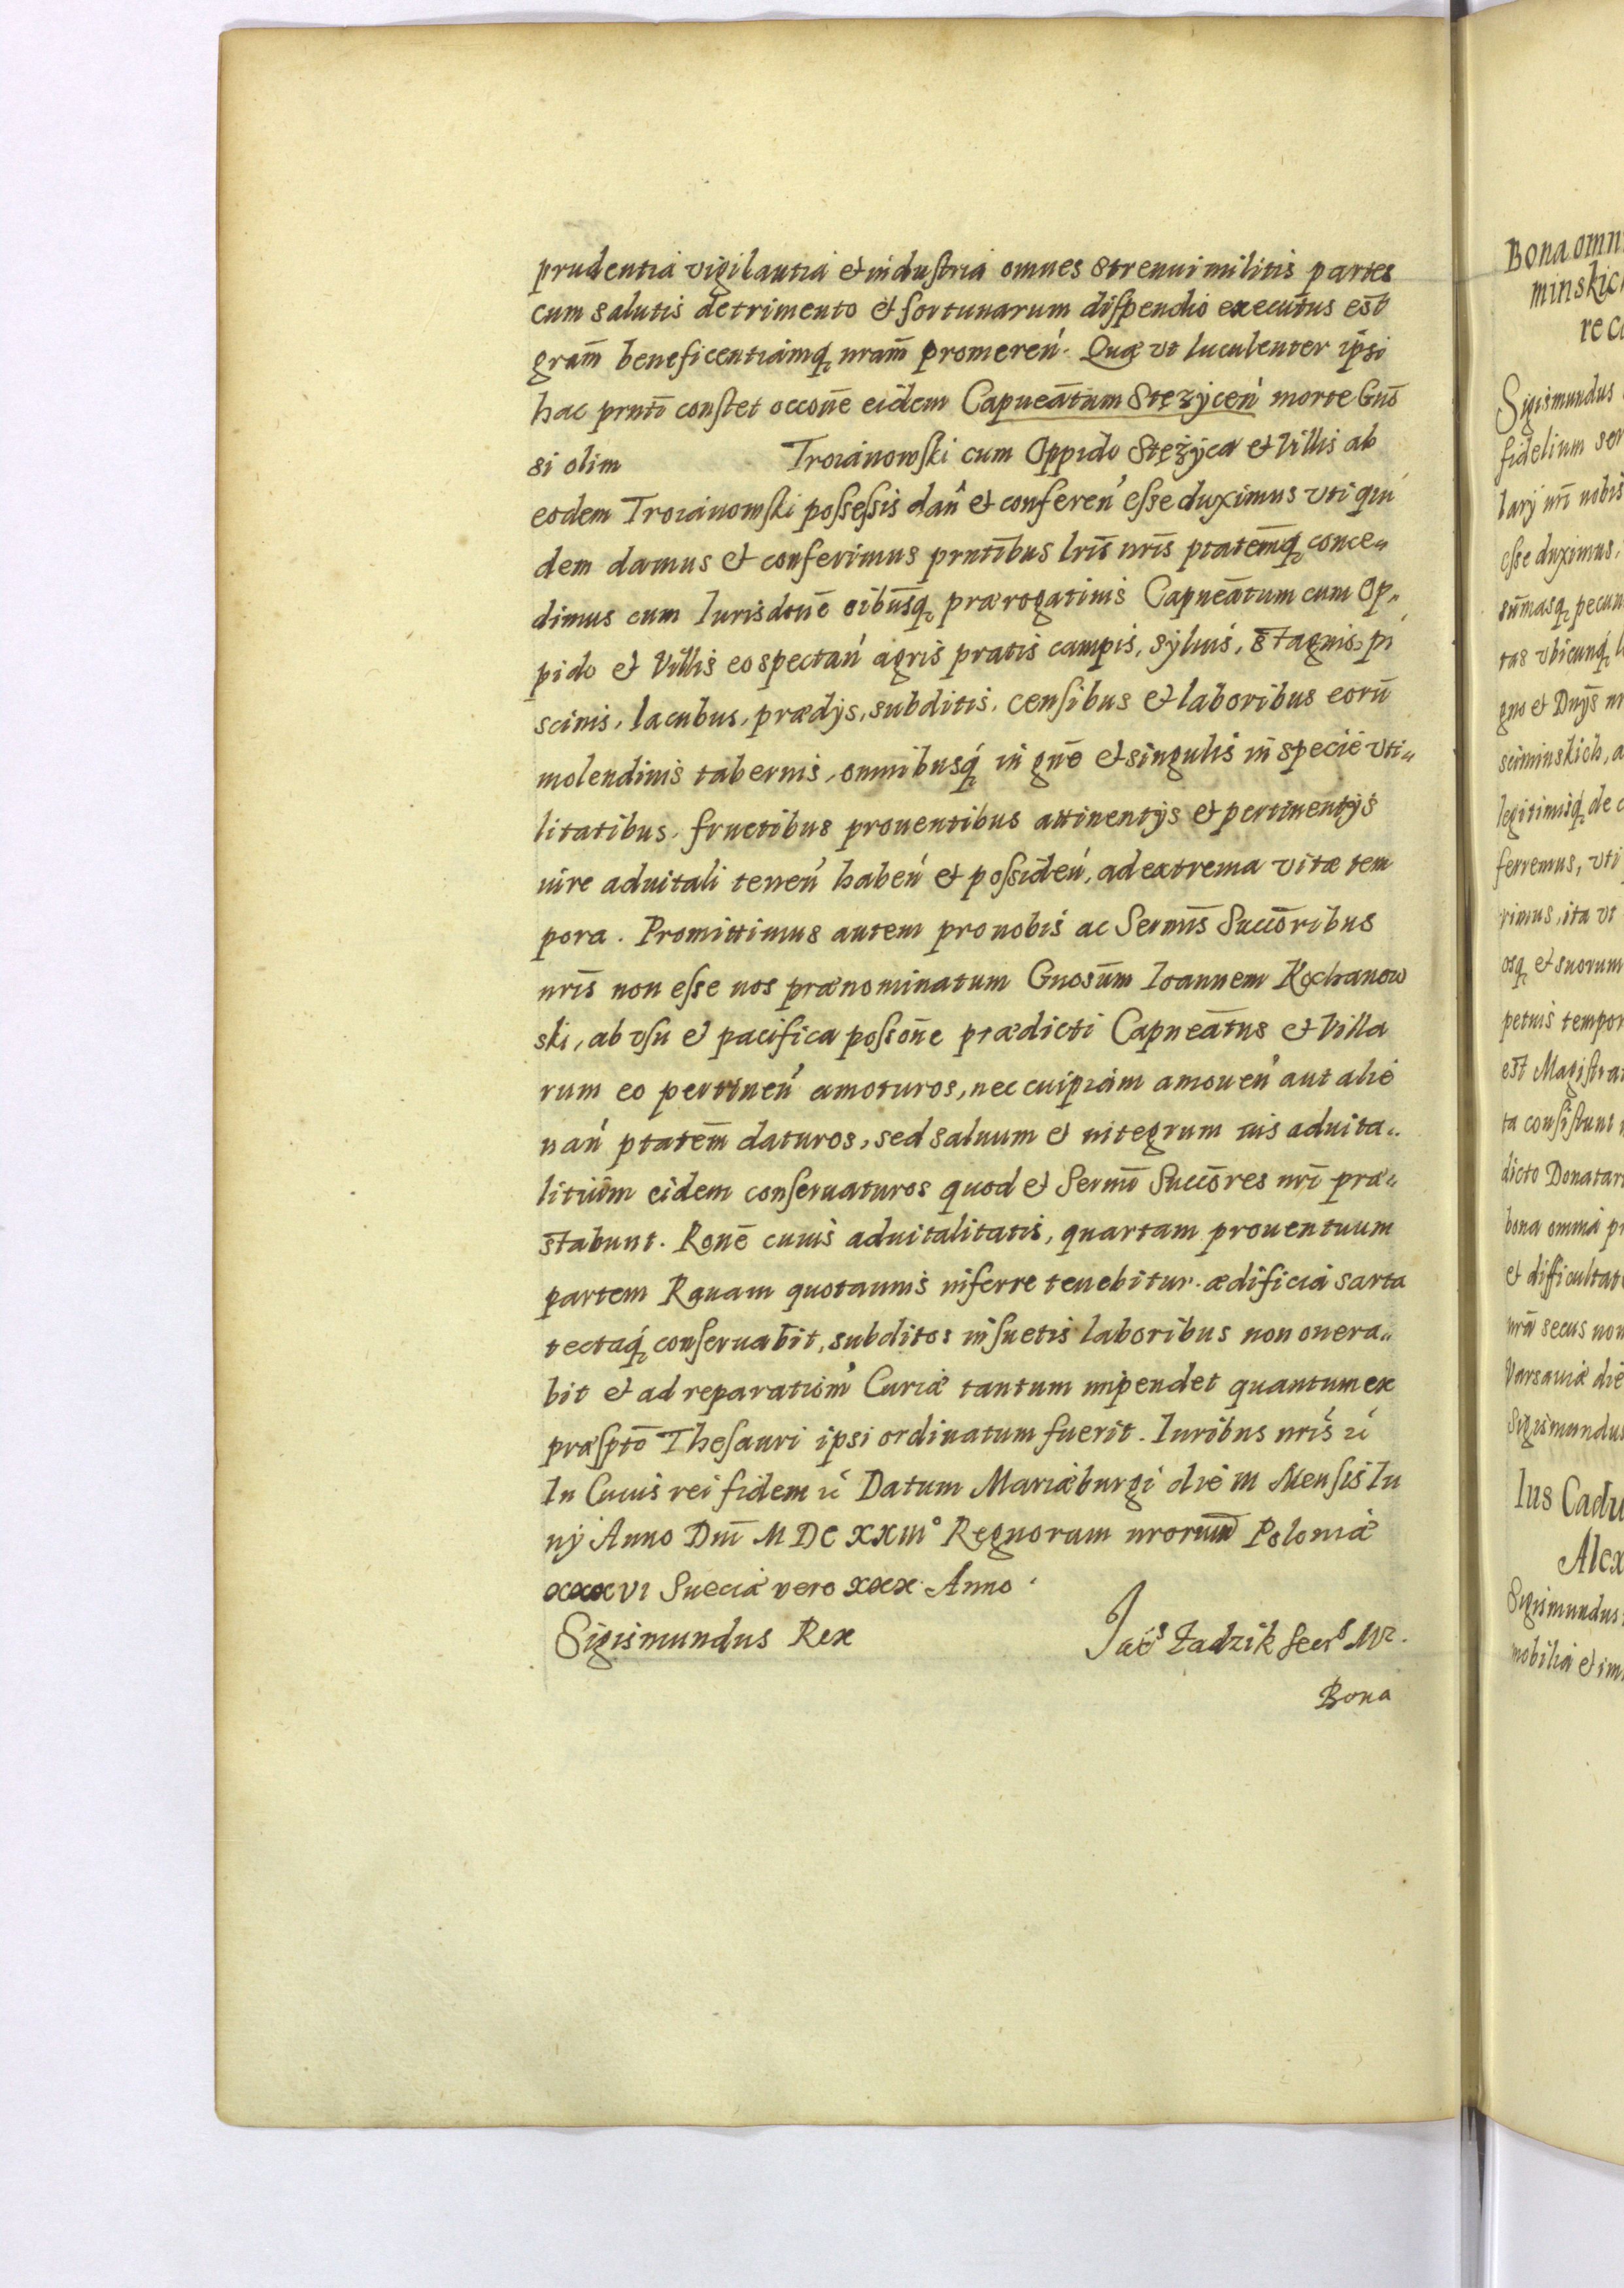 prudentia vigilantia et industria omnes strenui militis partes
cum salutis detrimento et fortunarum dispendio executus est
gram̄ beneficentiamq́ nram̄ promereń. Quæ vt luculenter ipsi
hac prnti constet occone eidem Capneātum Stężyceń morte Gno
si olim Troianowski cum Oppido Stężyca et Villis ab
eodem Troianowski possessis dań et confereń esse duximus vti qui
dem damus et conferimus prntibus lris nris ptatemq́ conce„
dimus cum Iurisdone oibusq́ prærogatiuis Capneātum cum Op„
pido et Villis eo spectań agris pratis campis, syluis, stagnis, pi
scinis, lacubus, prædÿs, subditis, censibus et laboribus eorū
molendinis tabernis, omnibusq́ in gne et singulis in specie vti„
litatibus, fructibus prouentibus attinentÿs et pertinentÿs
iure aduitali teneń habeń et possideń, ad extrema vitæ tem
pora. Promittimus autem pro nobis ac Sermis Succoribus
nris non esse nos prænominatum Gnosum Ioannem Kochanow
ski, ab vsu et pacifica possone prædicti Capneātus et Villa
rum eo pertineń amoturos, nec cuipiam amoueń aut alie
nań ptatem daturos, sed saluum et integrum ius aduita„
litium eidem conseruaturos quod et Sermi Succores nri præ„
stabunt. Rone cuius aduitalitatis, quartam prouentuum
partem Rauam quotannis inferre tenebitur. ædificia sarta
tectaq́ conseruabit, subditos insuetis laboribus non onera„
bit et ad reparationem Curiæ tantum impendet quantum ex
præspto Thesauri ipsi ordinatum fuerit. Iuribus nris ć
In Cuius rei fidem ć Datum Mariæburgi die III Mensis Iu
nÿ Anno Dni M DC XXIII° Regnorum nrorum Poloniæ
XXXVI Sueciæ vero XXX Anno.
Sigismundus Rex Iac⁸ Zadzik Secr⁸ Mr.
Bona
Bona omni
minskich
Sigismundus
fidelium ser
larÿ nri nobis
esse duximus.
sūmasq́ pecun
tas vbicunq́
gno et Dnÿs
sciminskich, a
legitimisq́ de
ferremus, vti
rimus, ita vt
osq́ et suorum
petuis tempor
est Magistra
ta consistunt
dicto Donatar
bona omnia
et difficultat
nra secus non
Varsauiæ die
Sigismundus
Ius Cadu
Alex
Sigismundus
mobilia et im